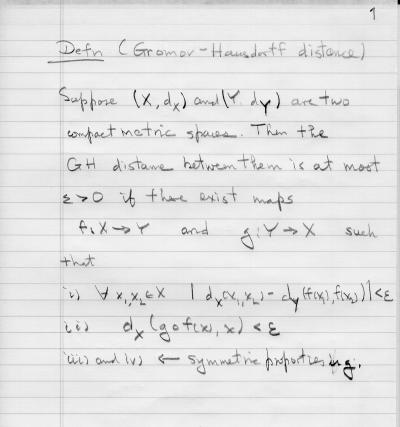 1
Defn (Gromov-Hausdorff distance)
Suppose (X, dₓ) and (Y, d_Y) are two
compact metric spaces. Then the
GH distance between them is at most
ε > 0 if there exist maps
f: X → Y and g: Y → X such
that
i) ∀ x₁, x₂ ∈ X | dₓ(x₁, x₂) - d_Y(f(x₁), f(x₂))| < ε
ii) dₓ(g∘f(x), x) < ε
iii) and iv) ← symmetric properties g.